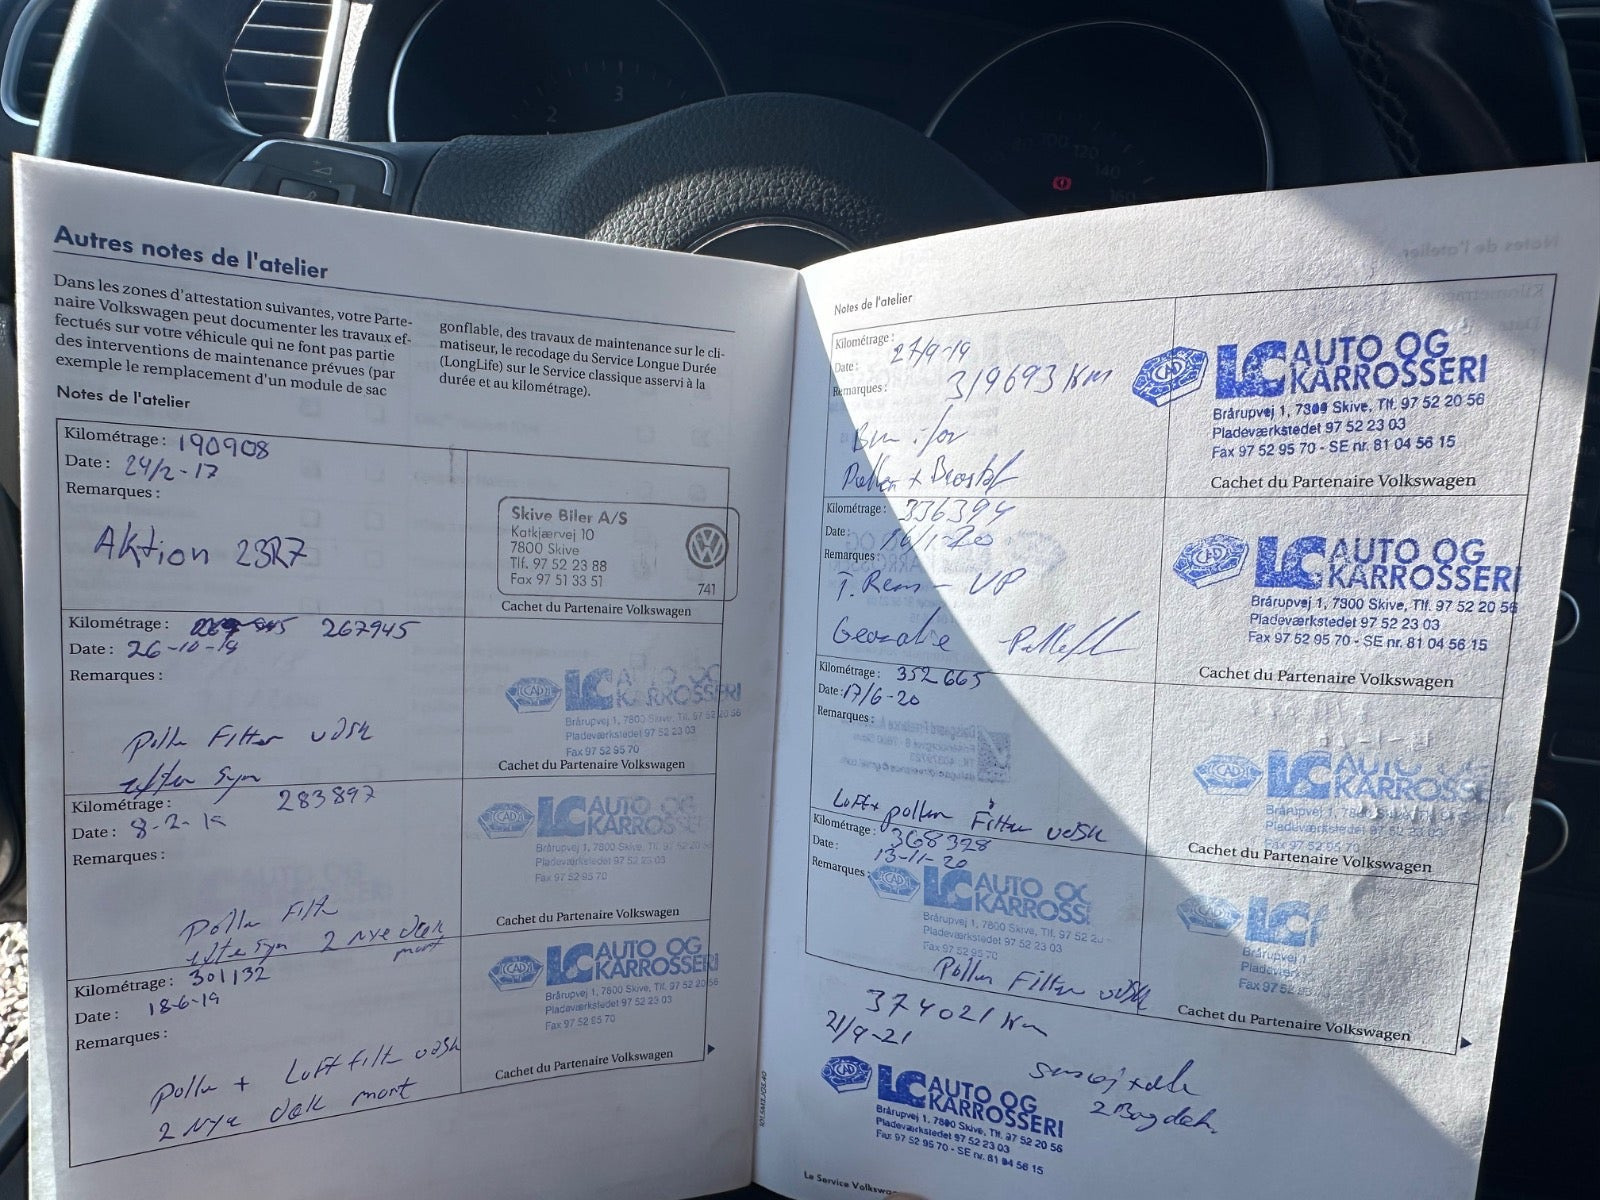 Autres notes de l'atelier
Dans les zones d'attestation suivantes, votre Parte-
naire Volkswagen peut documenter les travaux ef-
fectués sur votre véhicule qui ne font pas partie
des interventions de maintenance prévues (par
exemple le remplacement d'un module de sac
gonflable, des travaux de maintenance sur le cli-
matiseur, le recodage du Service Longue Durée
(LongLife) sur le Service classique asservi à la
durée et au kilométrage).
Notes de l'atelier
Kilométrage : 190908
Date : 24/2-17
Remarques :
Aktion 23R7
Skive Biler A/S
Katkjærvej 10
7800 Skive
Tlf. 97 52 23 88
Fax 97 51 33 51
741
Cachet du Partenaire Volkswagen
Kilométrage : 267945
Date : 26-10-18
Remarques :
Pollen Filter udsk
efter syn
LC AUTO OG
KARROSSERI
Brårupvej 1, 7800 Skive, Tlf. 97 52 20 56
Pladeværkstedet 97 52 23 03
Fax 97 52 95 70
Cachet du Partenaire Volkswagen
Kilométrage : 283897
Date : 8-2-19
Remarques :
Pollen Filter
efter syn 2 nye dæk
mont
CAD
LC AUTO OG
KARROSSERI
Brårupvej 1, 7800 Skive, Tlf. 97 52 20
Pladeværkstedet 97 52 23 03
Fax 97 52 95 70
Cachet du Partenaire Volkswagen
Kilométrage : 301132
Date : 18-6-19
Remarques :
Pollen + Luftfilter udsk
2 nye dæk mont
CAD
LC AUTO OG
KARROSSERI
Brårupvej 1, 7800 Skive, Tlf. 97 52 20 56
Pladeværkstedet 97 52 23 03
Fax 97 52 95 70
Cachet du Partenaire Volkswagen
Notes de l'atelier
Kilométrage :
Date : 27/9-19
Remarques : 319693 Km
Pollen +
CAD
LC AUTO OG
KARROSSERI
Brårupvej 1, 7800 Skive, Tlf. 97 52 20 56
Pladeværkstedet 97 52 23 03
Fax 97 52 95 70 - SE nr. 81 04 56 15
Cachet du Partenaire Volkswagen
Kilométrage : 336394
Date : 16/1-20
Remarques :
T. Rem
CAD
LC AUTO OG
KARROSSERI
Brårupvej 1, 7800 Skive, Tlf. 97 52 20 56
Pladeværkstedet 97 52 23 03
Fax 97 52 95 70 - SE nr. 81 04 56 15
Cachet du Partenaire Volkswagen
Kilométrage : 352665
Date : 17/6-20
Remarques :
Luft+ pollen Filter udsk
CAD
LC AUTO OG
KARROSSE
Brårupvej 1, 7800
Pladeværkstedet
Fax 97 52 95 70
Cachet du Partenaire Volkswagen
Kilométrage : 368328
Date : 13-11-20
Remarques :
CAD
LC AUTO OG
KARROSSE
Brårupvej 1, 7800 Skive, Tlf. 97 52 2
Pladeværkstedet 97 52 23 03
Fax 97 52 95 70
Pollen Filter udsk
CAD
LC
Brårupvej 1
Cachet du Partenaire Volkswagen
374021 Km
21/9-21
2 Bagdæk
CAD
LC AUTO OG
KARROSSERI
Brårupvej 1, 7800 Skive, Tlf. 97 52 20 56
Pladeværkstedet 97 52 23 03
Fax 97 52 95 70 - SE nr. 81 04 56 15
Le Service Volkswa